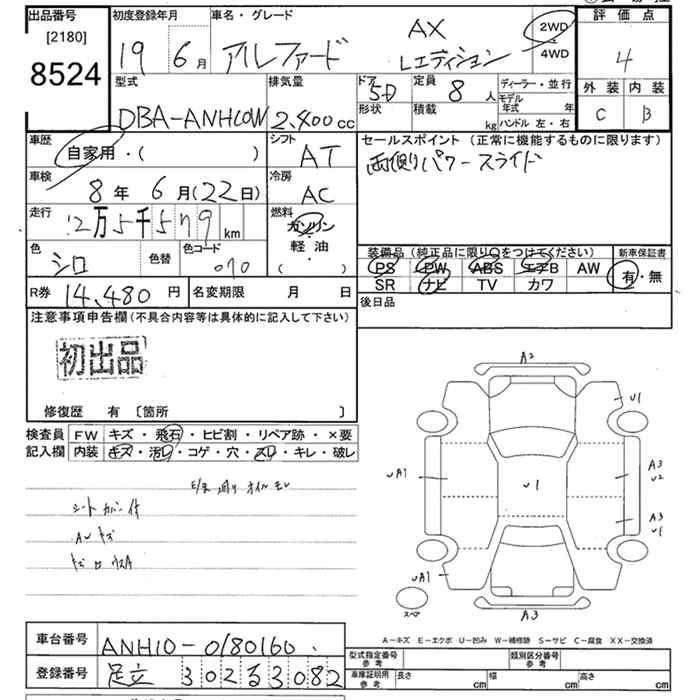 出品番号
[2180]
8524
初度登録年月
19 6月
車名・グレード
アルファード
AX
Lエディション
2WD
4WD
評価点
4
外装 内装
C B
型式
DBA-ANH10W
排気量
2,400cc
ドア
5D
形状
定員
8人
積載
kg
ディーラー・並行
モデル年式 年
ハンドル 左・右
車歴
自家用・( )
シフト
AT
セールスポイント (正常に機能するものに限ります)
両側パワースライド
車検
8年 6月(22日)
冷房
AC
走行
12万5千579km
燃料
ガソリン
軽油
( )
色
シロ
色替
色コード
070
装備品(純正品に限り○をつけてください)
PS PW ABS エアB AW
SR ナビ TV カワ
新車保証書
有・無
R券 14,480円
名変期限 月 日
後日品
注意事項申告欄(不具合内容等は具体的に記入して下さい)
初出品
修復歴 有 〔箇所 〕
検査員記入欄
FW キズ・飛石・ヒビ割・リペア跡・×要
内装 キズ・汚レ・コゲ・穴・スレ・キレ・破レ
シートカバー付
A2
U1
UA1
U1
A3
U2
A3
U1
UA1
A3
スペア
A-キズ E-エクボ U-凹み W-補修跡 S-サビ C-腐食 XX-交換済
車台番号 ANH10-0180160
登録番号 足立 302 る 3082
型式指定番号 参考
類別区分番号 参考
車庫証明用 参考
長さ cm 幅 cm 高さ cm